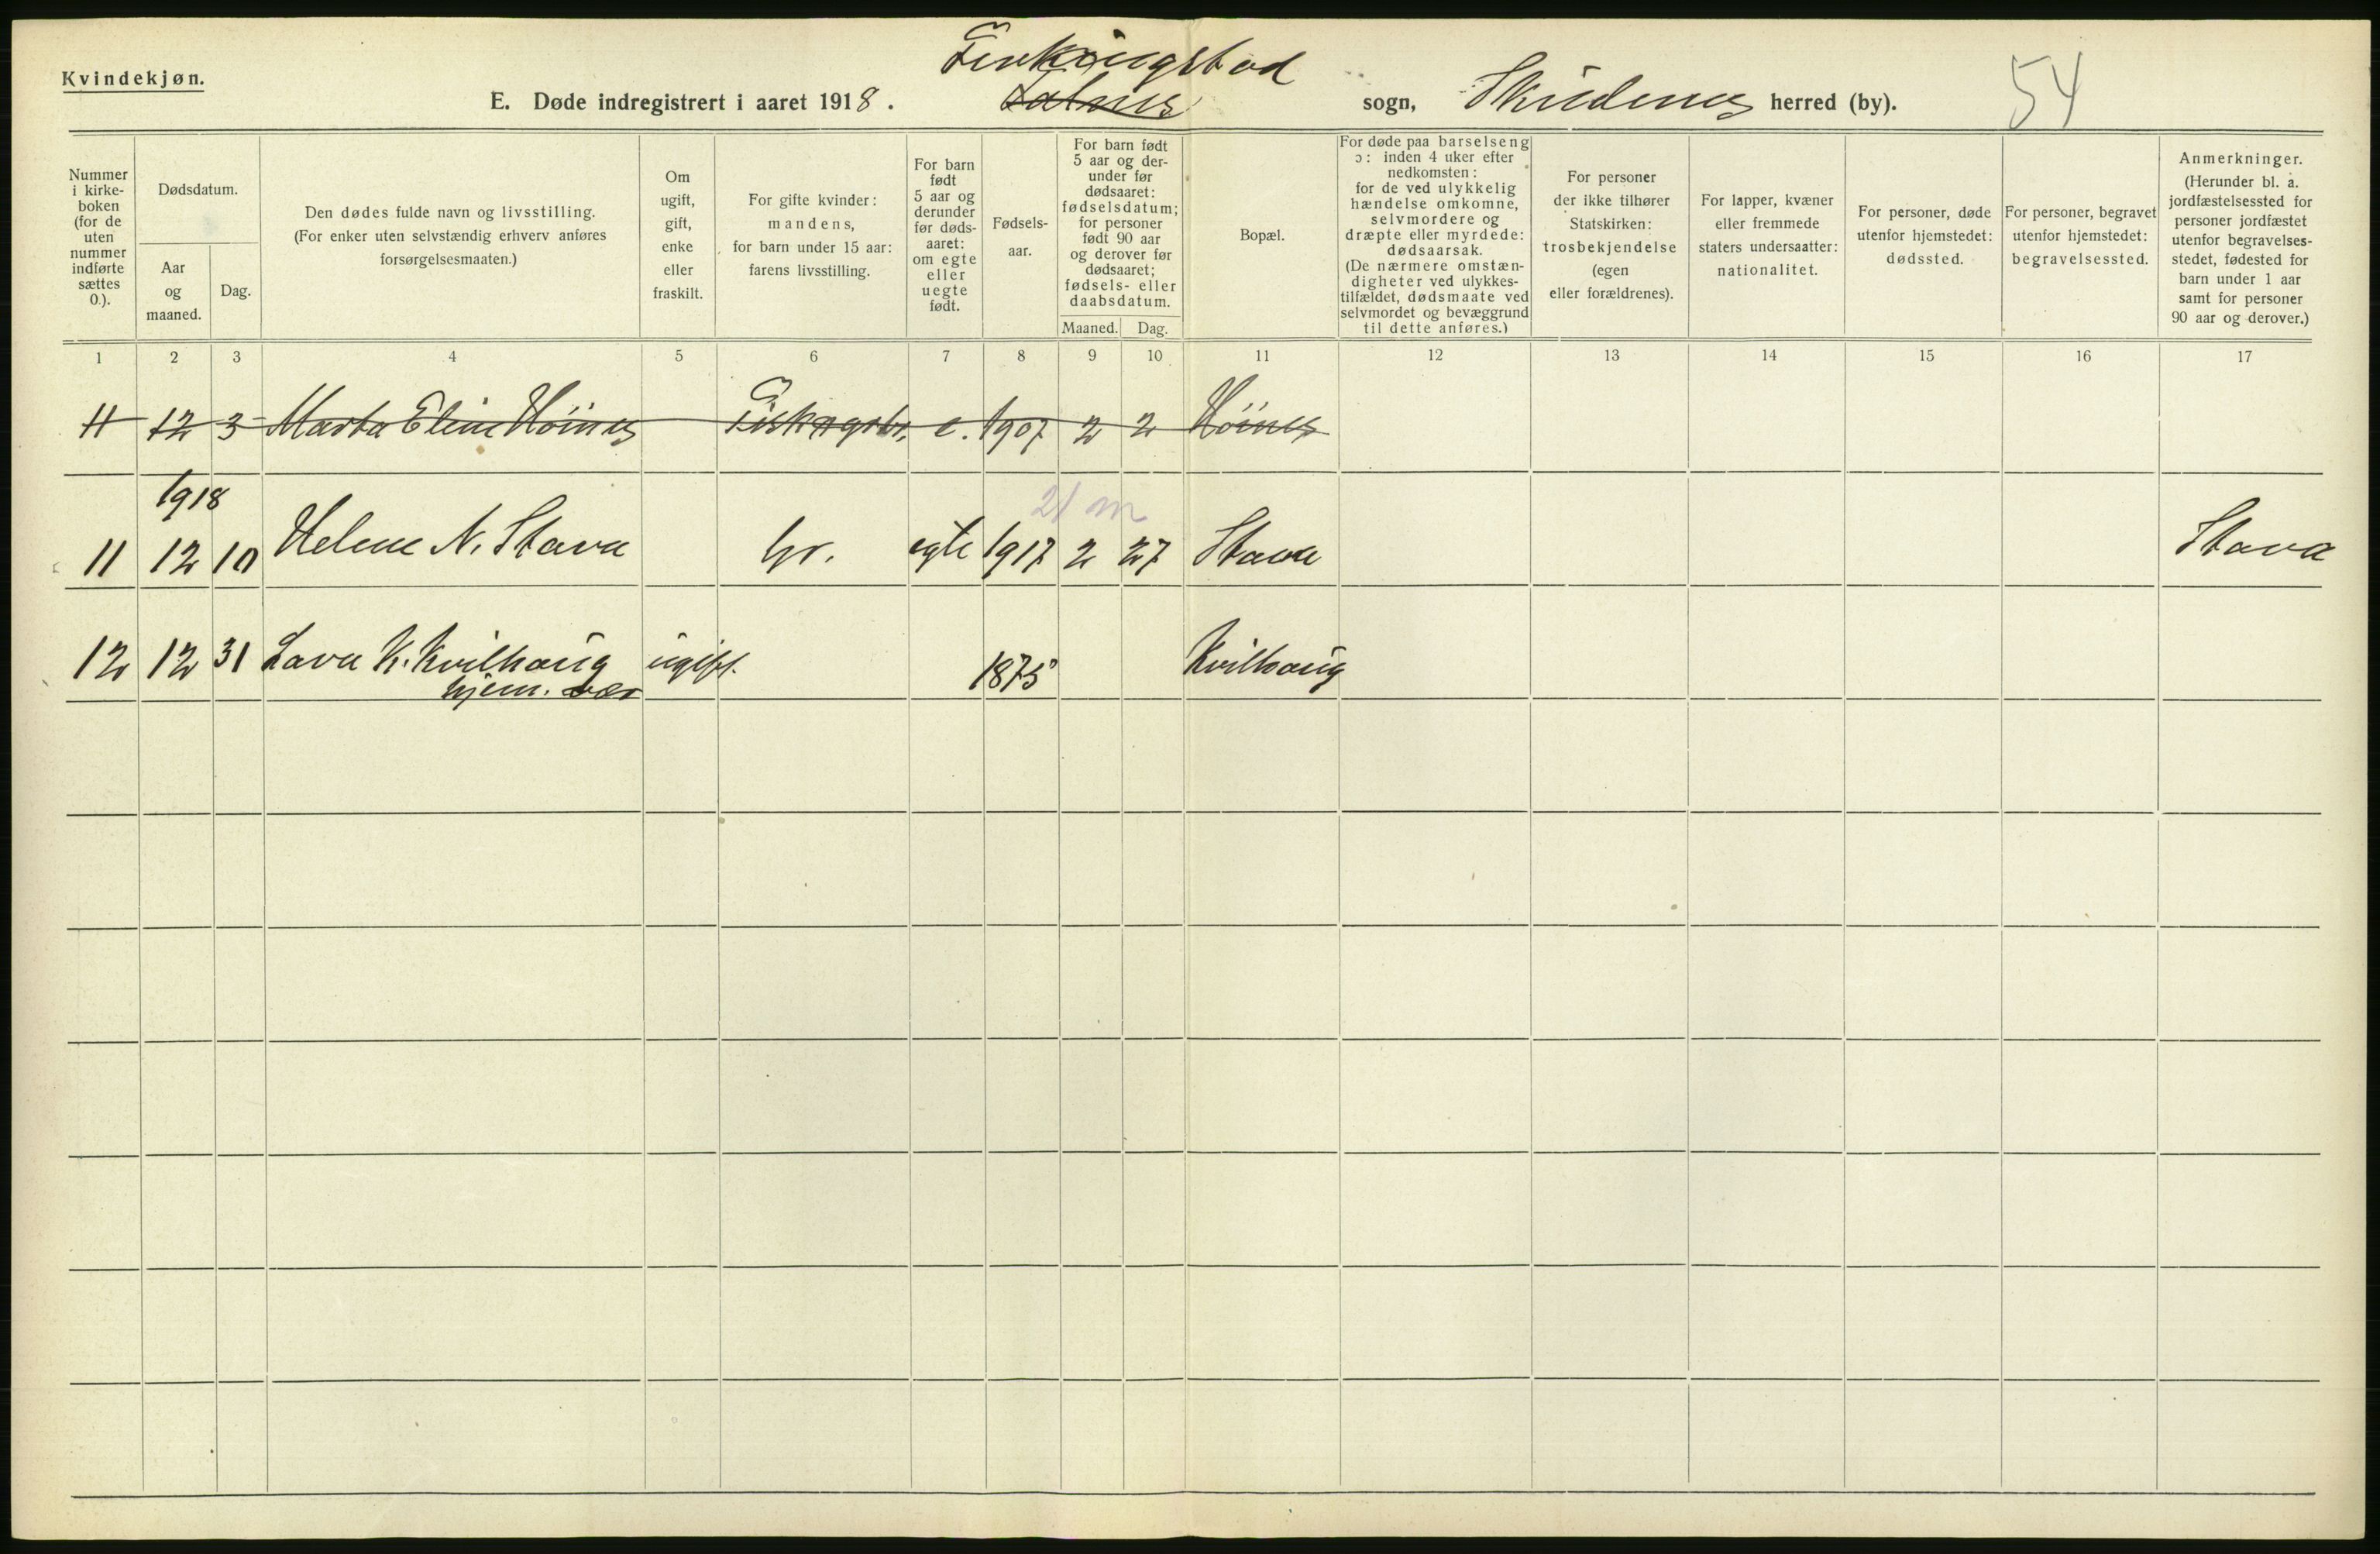 Kvindekjøn.
Ferkingstad
E. Døde indregistrert i aaret 1918. Falnes sogn, Skudenes herred (by). 54
Nummer i kirke-boken (for de uten nummer indførte sættes 0.).
Dødsdatum.
Aar og maaned.
Dag.
Den dødes fulde navn og livsstilling.
(For enker uten selvstændig erhverv anføres
forsørgelsesmaaten.)
Om ugift, gift, enke eller fraskilt.
For gifte kvinder: mandens, for barn under 15 aar: farens livsstilling.
For barn født 5 aar og derunder før døds-aaret: om egte eller uegte født.
Fødsels-aar.
For barn født 5 aar og der-under før dødsaaret: fødselsdatum; for personer født 90 aar og derover før dødsaaret; fødsels- eller daabsdatum.
Maaned. Dag.
Bopæl.
For døde paa barselseng ɔ: inden 4 uker efter nedkomsten: for de ved ulykkelig hændelse omkomne, selvmordere og dræpte eller myrdede: dødsaarsak. (De nærmere omstæn-digheter ved ulykkes-tilfældet, dødsmaate ved selvmordet og bevæggrund til dette anføres.)
For personer der ikke tilhører Statskirken: trosbekjendelse (egen eller forældrenes).
For lapper, kvæner eller fremmede staters undersaatter: nationalitet.
For personer, døde utenfor hjemstedet: dødssted.
For personer, begravet utenfor hjemstedet: begravelsessted.
Anmerkninger. (Herunder bl. a. jordfæstelsessted for personer jordfæstet utenfor begravelses-stedet, fødested for barn under 1 aar samt for personer 90 aar og derover.)
1 2 3 4 5 6 7 8 9 10 11 12 13 14 15 16 17
11 12 3 Marta Eline Höines Fisk.ogsbr. e. 1907 2 2 Höines
1918 21 m
11 12 10 Helene N. Stava br. egte 1917 2 27 Stava Stava
12 12 31 Lava K. Kvilhaug ugift. 1875 Kvilhaug
hjem.